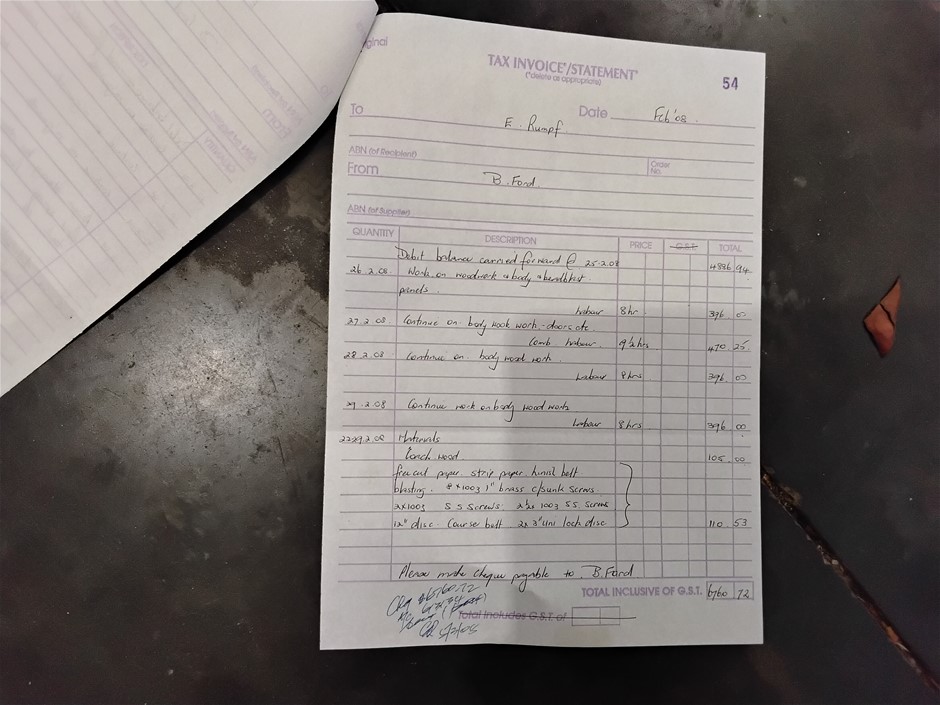 ginal
TAX INVOICE*/STATEMENT*
(*delete as appropriate)
54
To E. Rumpf Date Feb '08
ABN (of Recipient) Order No.
From B. Ford
ABN (of Supplier)
QUANTITY DESCRIPTION PRICE G.S.T. TOTAL
Debit balance carried forward @ 25-2.08 4886 94
26.2.08 Work on woodwork body
panels.
Labour 8hr 396 00
27.2.08 Continue on body work - doors etc.
Labour 9½hrs 470 25
28.2.08 Continue on body wood work.
Labour 8hrs 396 00
29.2.08 Continue work on body wood work
Labour 8hrs 396 00
Materials
Coach wood 105 00
freecut paper strip paper belt
blasting. 8 x 100g 1" brass c/sunk screws
S S Screws SS Screws
12" disc. Course belt 2x 3" uni loch disc 110 53
Please make cheque payable to B. Ford
TOTAL INCLUSIVE OF G.S.T. 6760 72
Total includes G.S.T. of